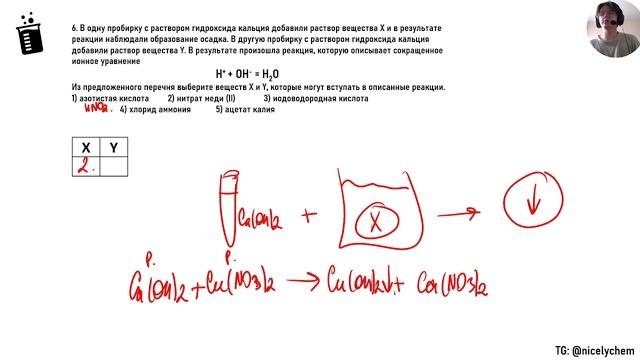 6. В одну пробирку с раствором гидроксида кальция добавили раствор вещества X и в результате
реакции наблюдали образование осадка. В другую пробирку с раствором гидроксида кальция
добавили раствор вещества Y. В результате произошла реакция, которую описывает сокращенное
ионное уравнение
H⁺ + OH⁻ = H₂O
Из предложенного перечня выберите веществ X и Y, которые могут вступать в описанные реакции.
1) азотистая кислота 2) нитрат меди (II) 3) иодоводородная кислота
HNO₂. 4) хлорид аммония 5) ацетат калия
X Y
2.
Ca(OH)₂ + X → ↓
р. р.
Ca(OH)₂ + Cu(NO₃)₂ → Cu(OH)₂↓ + Ca(NO₃)₂
TG: @nicelychem